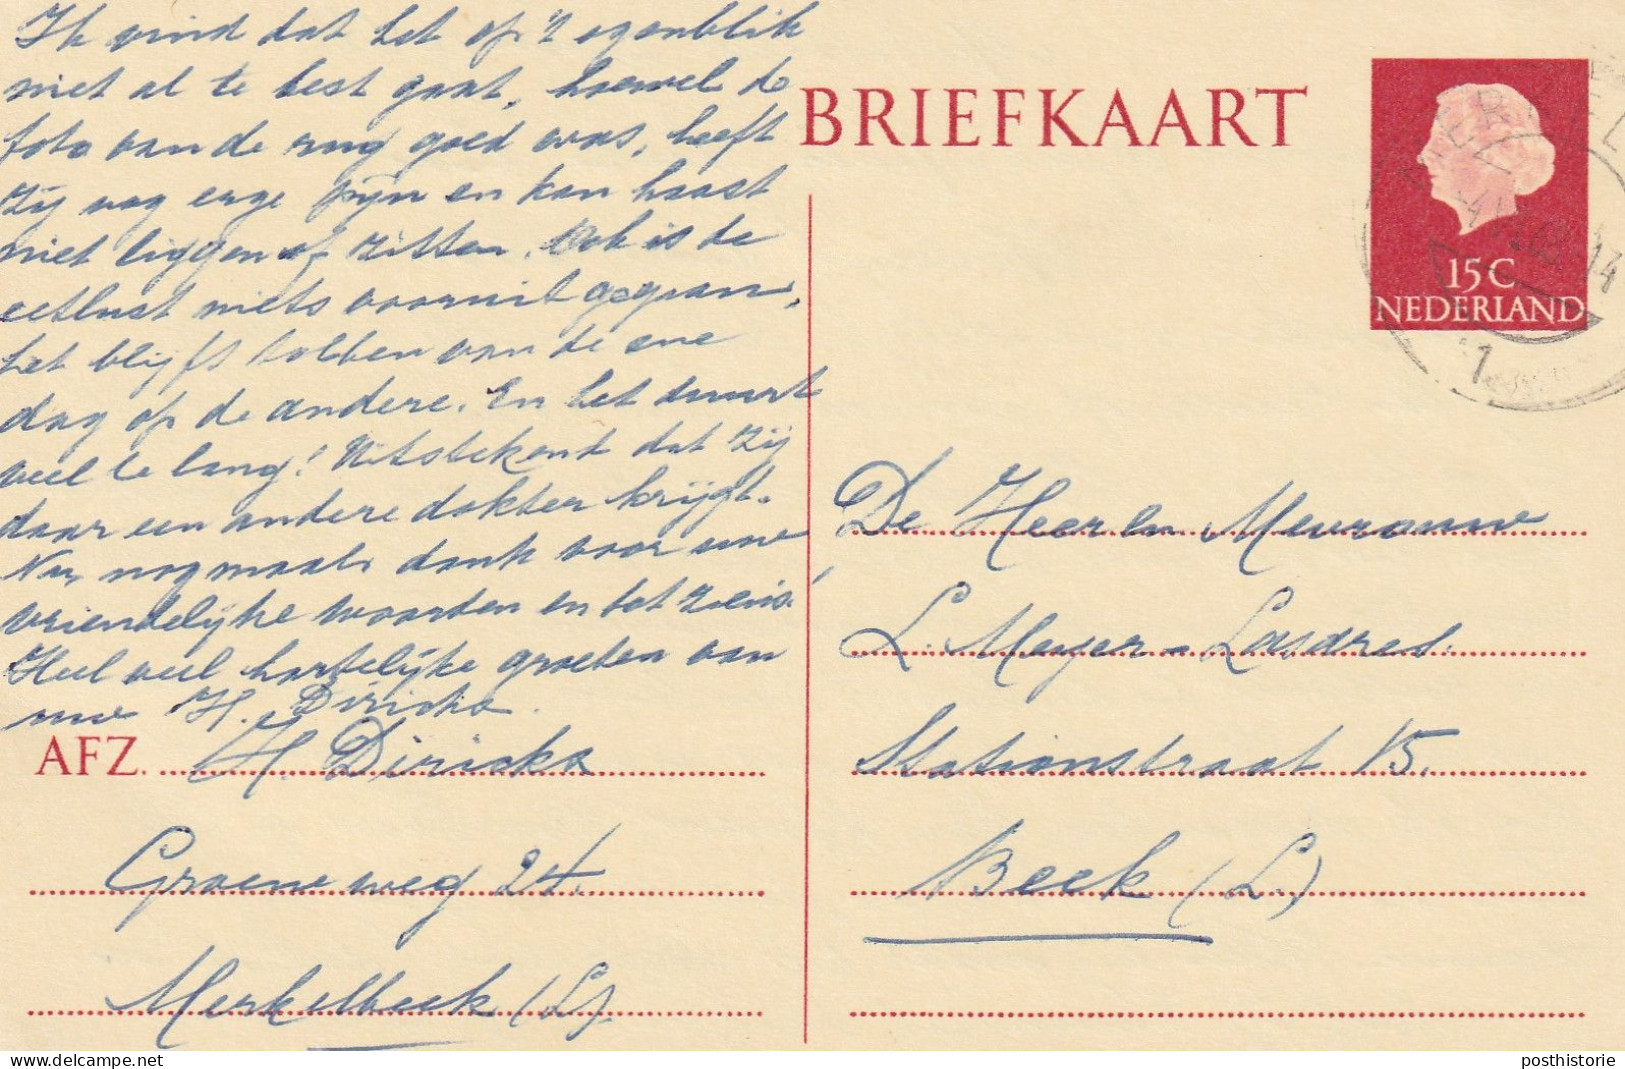 Ik vind dat het op 't ogenblik
niet al te best gaat, hoewel de
foto van de rug goed was, heeft
zij nog erge pijn en kan haast
niet liggen of zitten. Ook is de
eetlust niets vooruit gegaan,
het blijft tobben van de ene
dag op de andere. En het duurt
veel te lang! Uitstekend dat zij
daar een andere dokter krijgt.
Nu, nogmaals dank voor uwe
vriendelijke woorden en tot ziens!
Heel veel hartelijke groeten van
uw H. Diricks.
AFZ. H. Diricks
Groene weg 24.
Merkelbeek (L).
BRIEFKAART
15C
NEDERLAND
14
1
De Heer en Mevrouw
L. Meyer - Lasdres.
Stationstraat 15.
Beek (L.)
delcampe.net
posthistorie